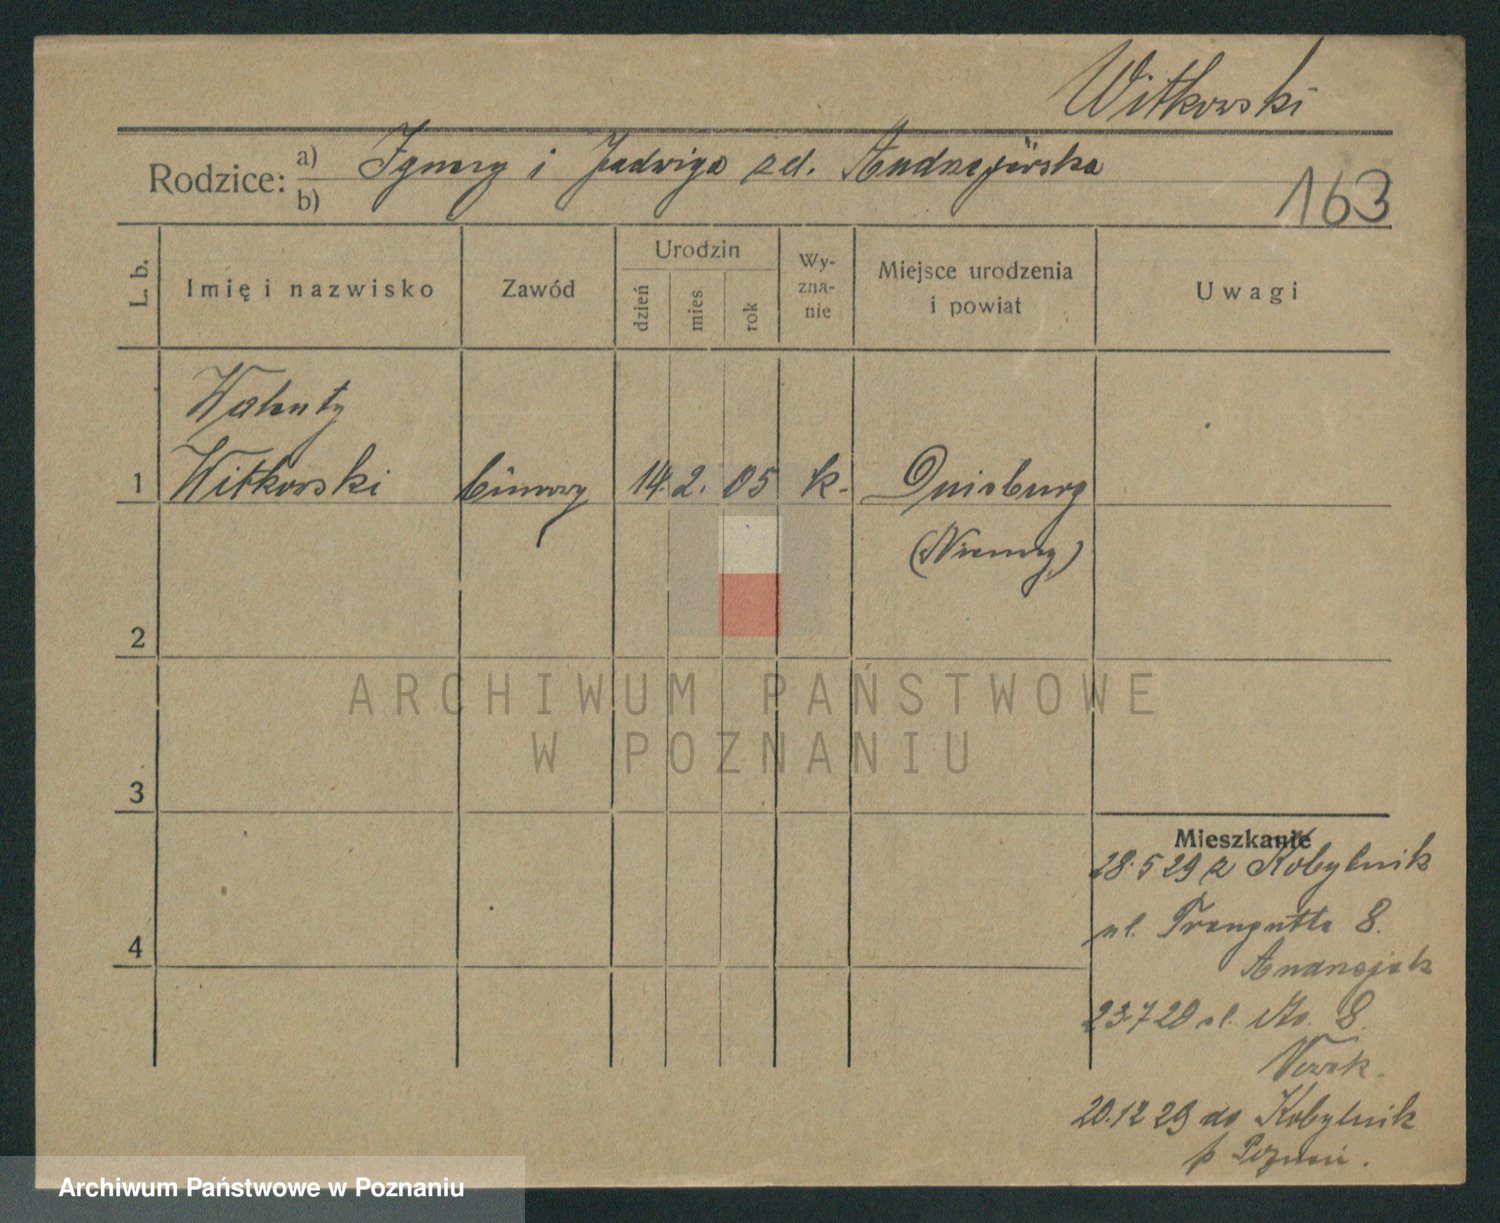 Witkowski
Rodzice: a) Ignacy i Jadwiga zd. Andrzejewska
b)
163
L. b.
Imię i nazwisko
Zawód
Urodzin
dzień
mies.
rok
Wy-
zna-
nie
Miejsce urodzenia
i powiat
Uwagi
Walenty
1 Witkowski 14. 2. 05 k. Duisburg
(Niemcy)
2
ARCHIWUM PAŃSTWOWE
W POZNANIU
3
Mieszkanie
28.5 29 z Kobylnik
ul. Traugutta 8.
Andrzejak
4
23.7 29 ul. 8.
Nowak.
20.12 29 do Kobylnik
p Poznań.
Archiwum Państwowe w Poznaniu